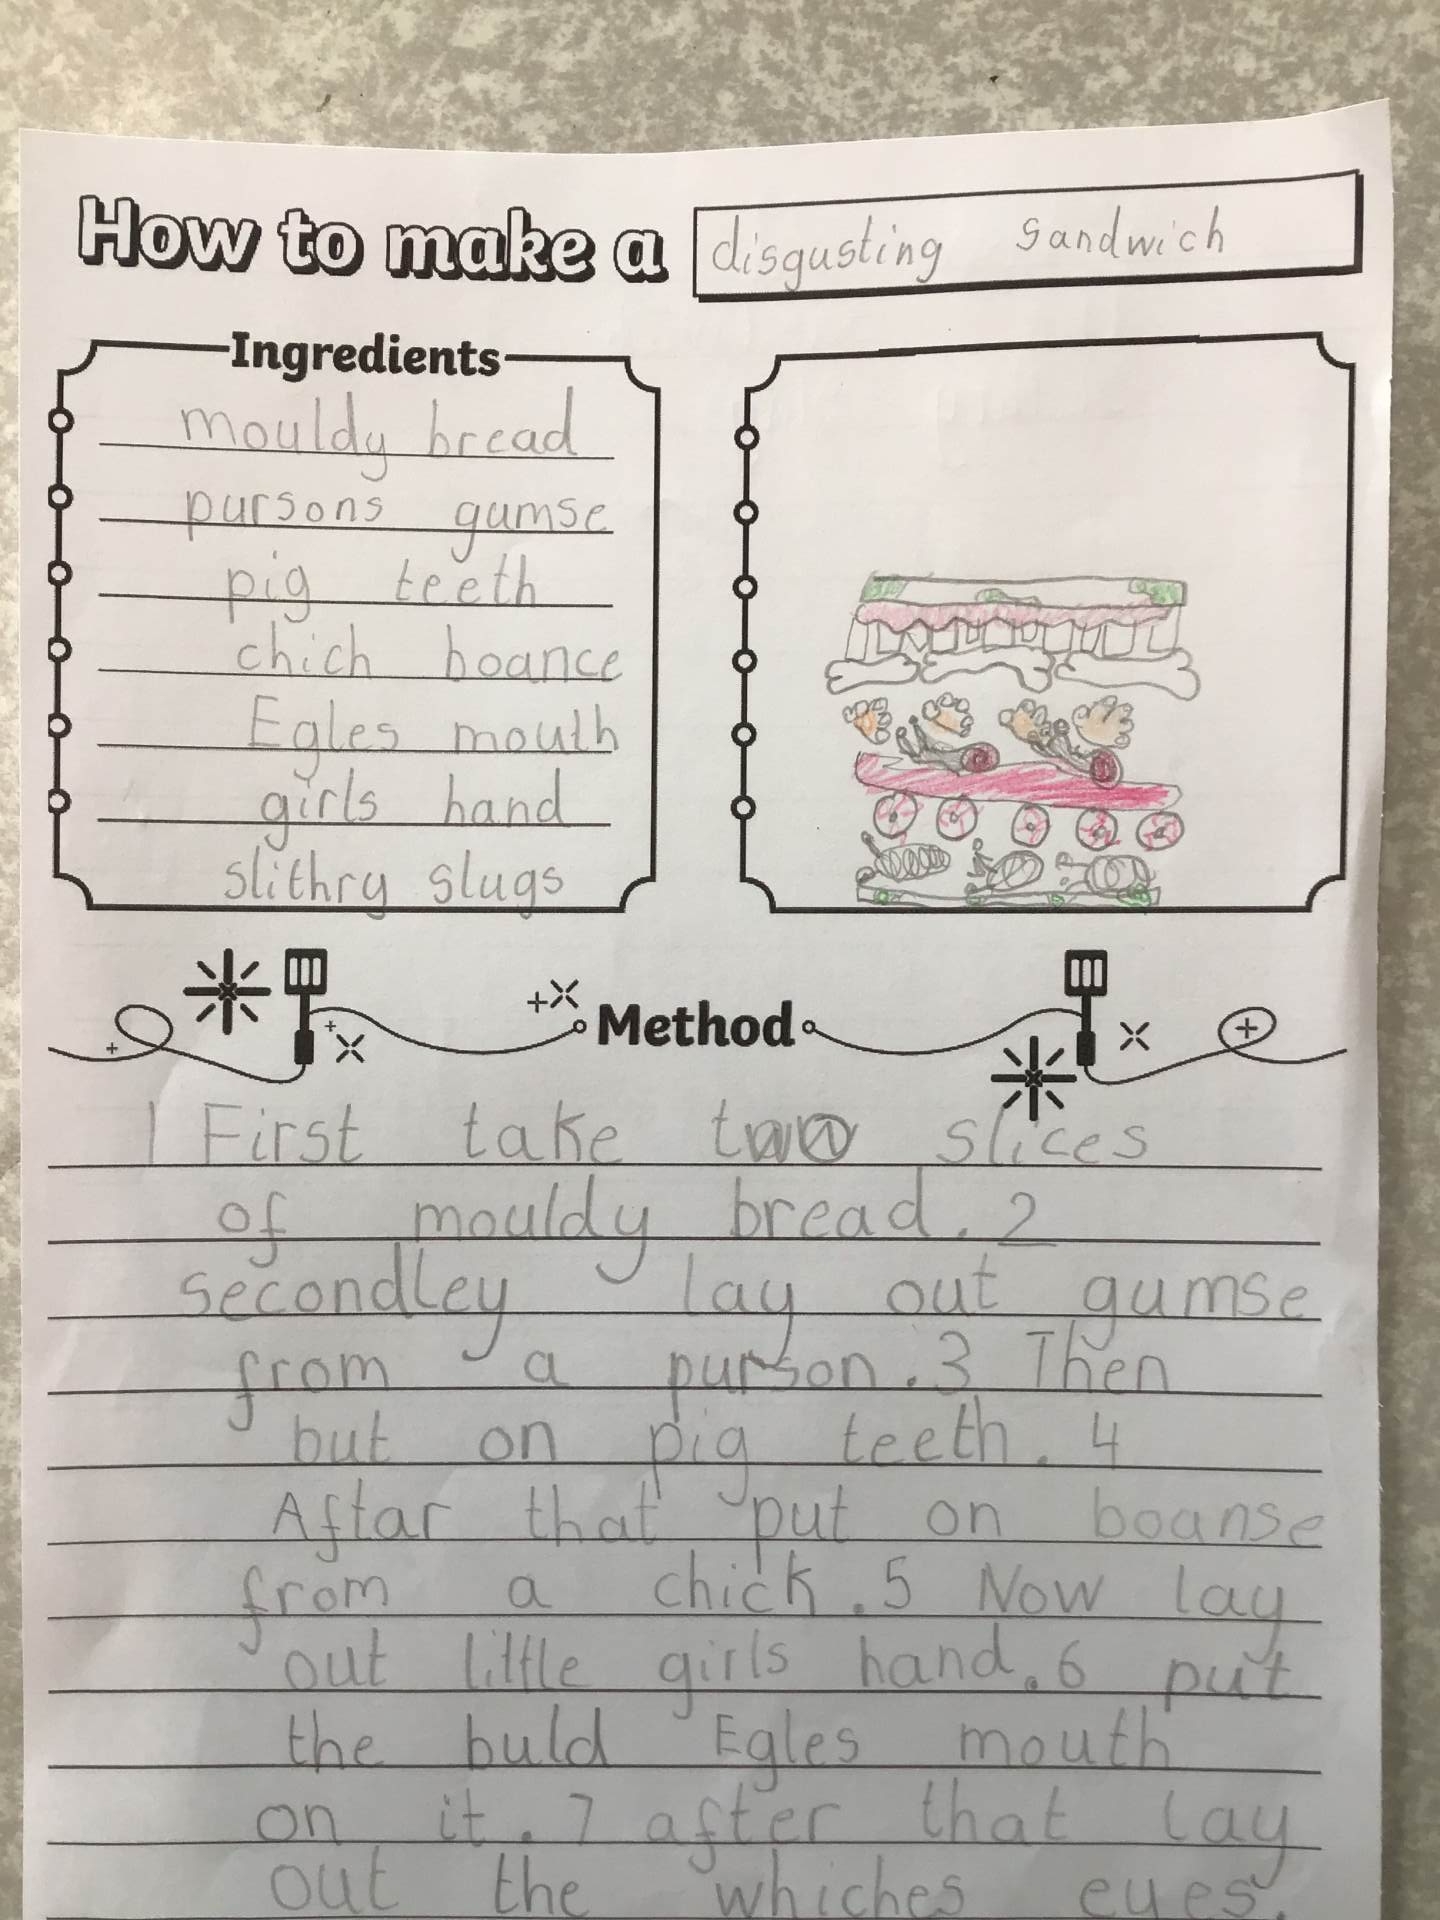 How to make a disgusting sandwich
Ingredients
mouldy bread
pursons gumse
pig teeth
chich boance
Egles mouth
girls hand
slithry slugs
Method
1 First take two slices
of mouldy bread. 2
secondley lay out gumse
from a purson. 3 Then
but on pig teeth. 4
Aftar that put on boanse
from a chick. 5 Now lay
out little girls hand. 6 put
the buld Egles mouth
on it. 7 after that lay
out the whiches eyes.